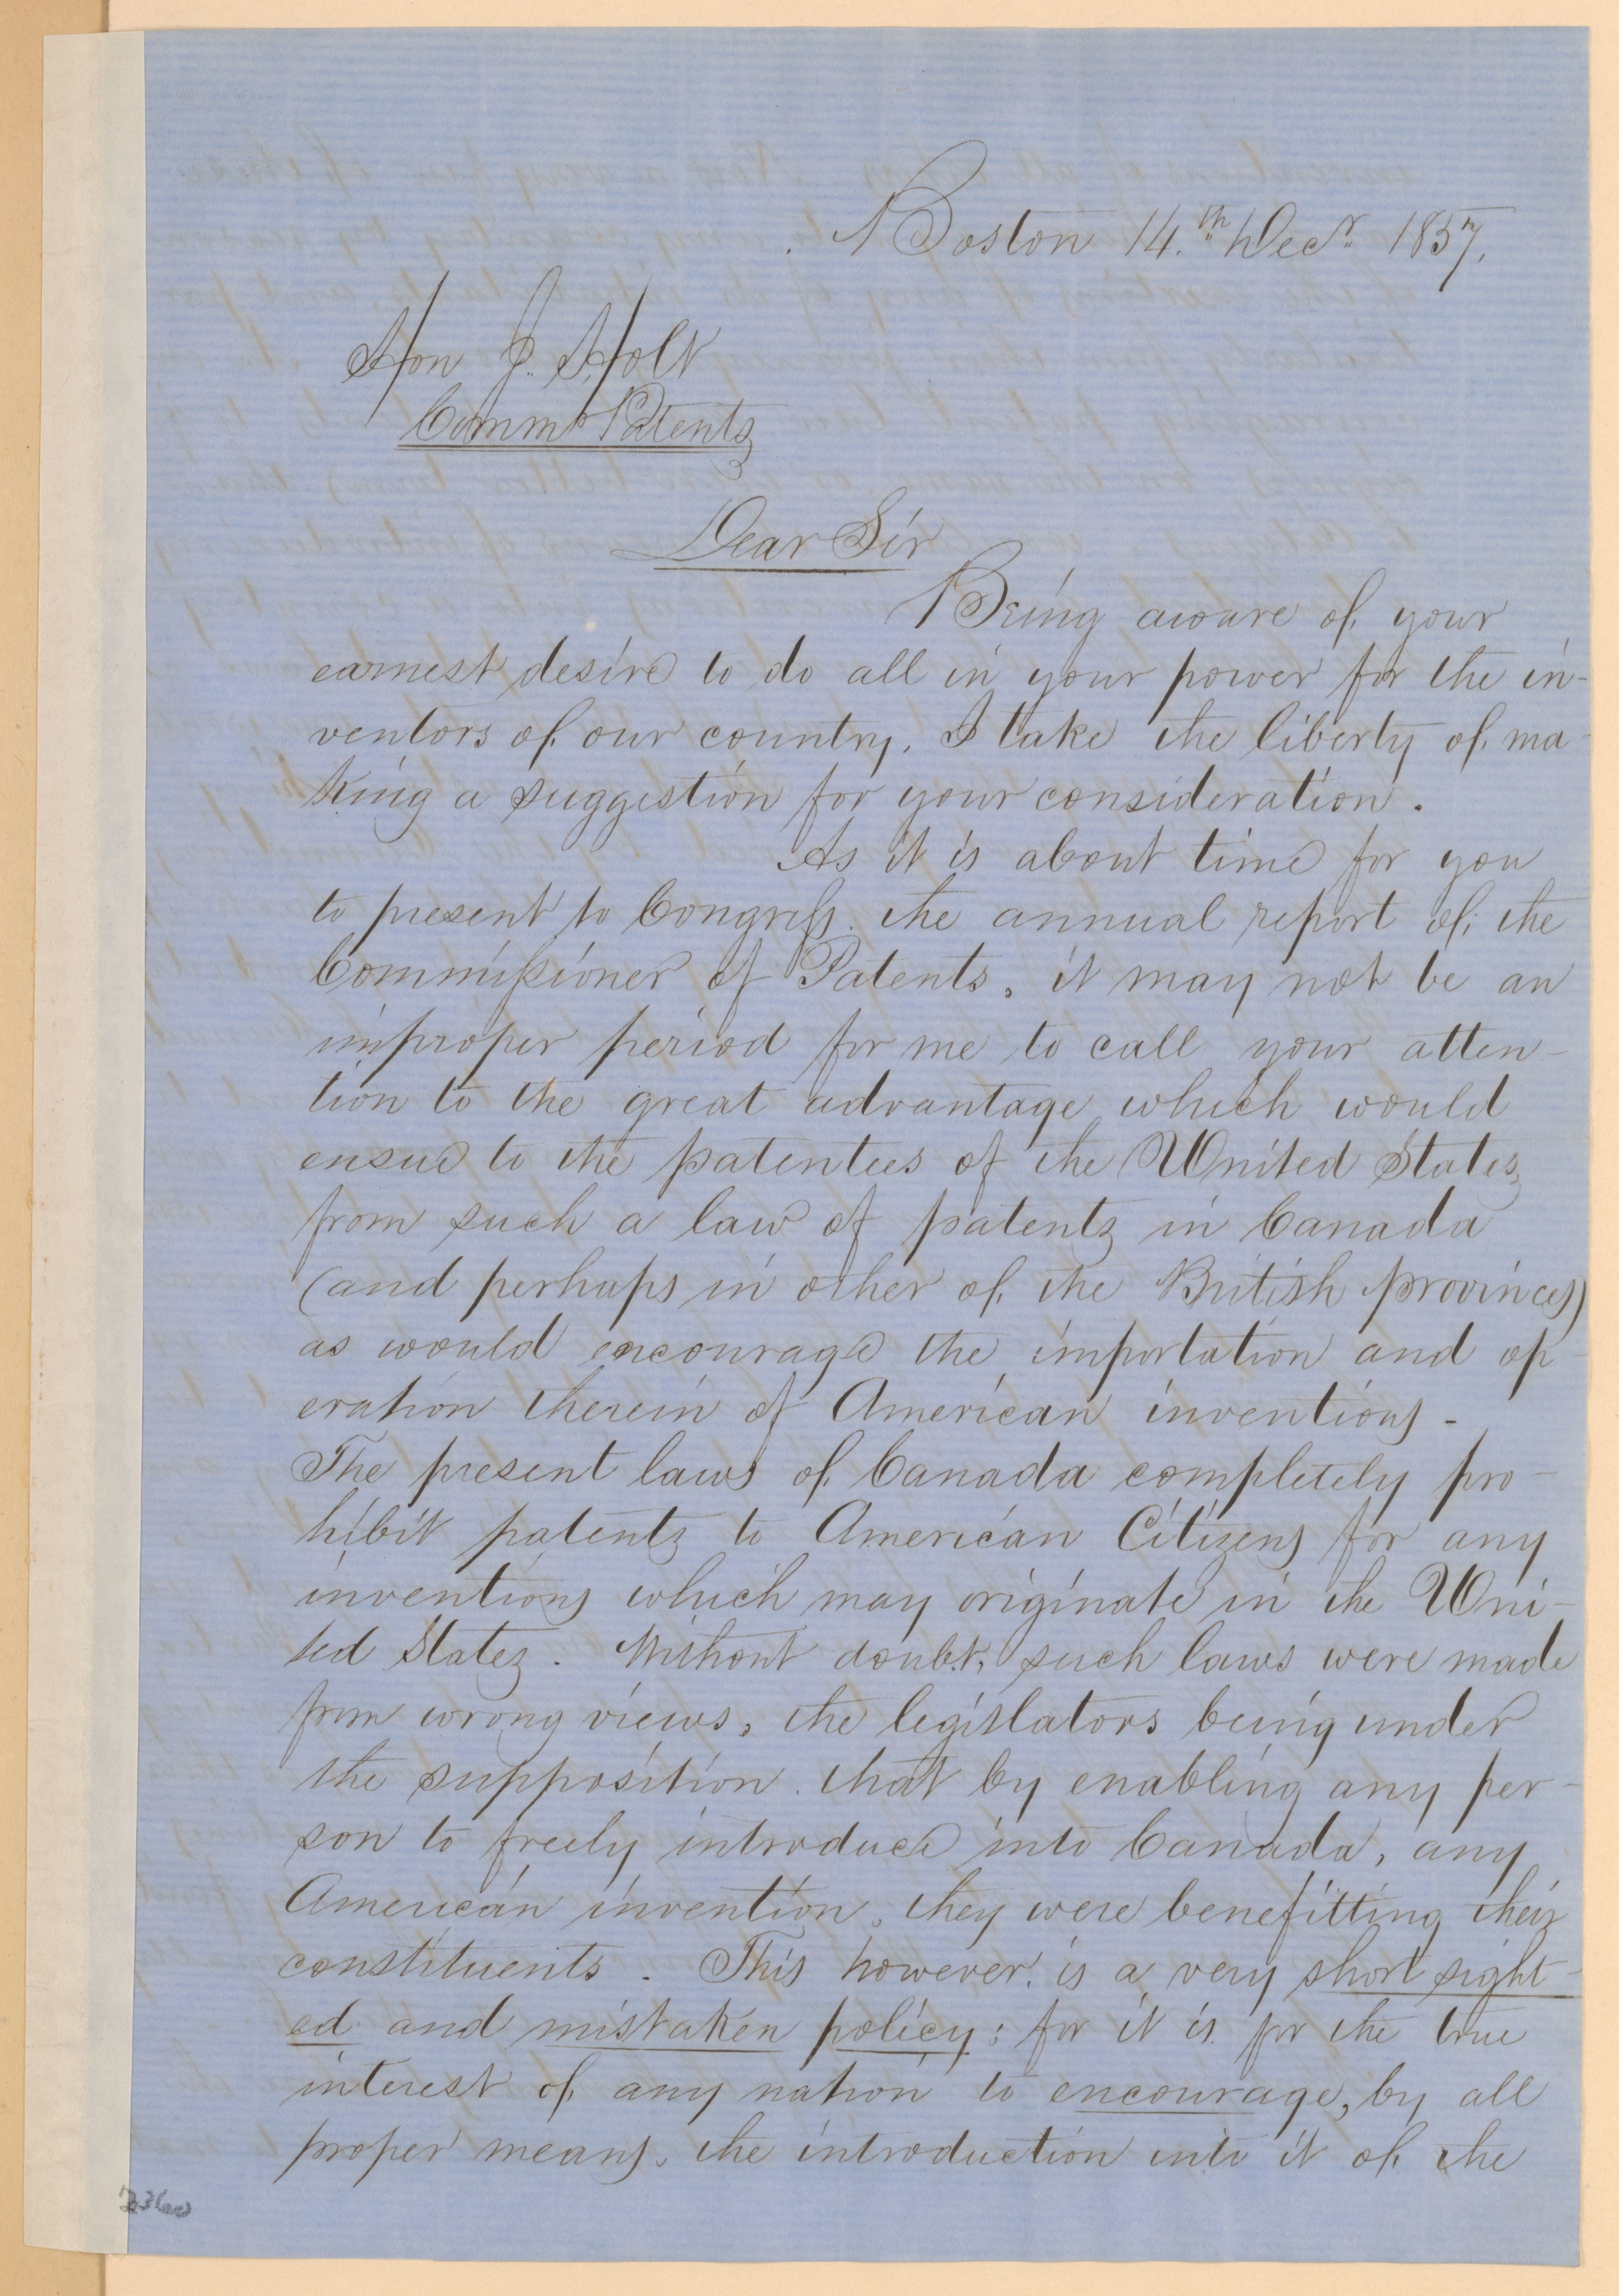 Boston 14.th Decr. 1857.
Hon J. Holt
Commr Patents
Dear Sir
Being aware of your
earnest desire to do all in your power for the in-
ventors of our country, I take the liberty of ma-
king a suggestion for your consideration.
As it is about time for you
to present to Congress the annual report of the
Commissioner of Patents, it may not be an
improper period for me to call your atten-
tion to the great advantage which would
ensue to the patentees of the United States
from such a law of patents in Canada
(and perhaps in other of the British provinces)
as would encourage the importation and op-
eration therein of American inventions -
The present laws of Canada completely pro-
hibit patents to American Citizens for any
inventions which may originate in the Uni-
ted States. Without doubt, such laws were made
from wrong views, the legislators being under
the supposition that by enabling any per-
son to freely introduce into Canada, any
American invention, they were benefitting their
constituents. This however, is a very short sight-
ed and mistaken policy; for it is for the true
interest of any nation to encourage, by all
proper means, the introduction into it of the
2360